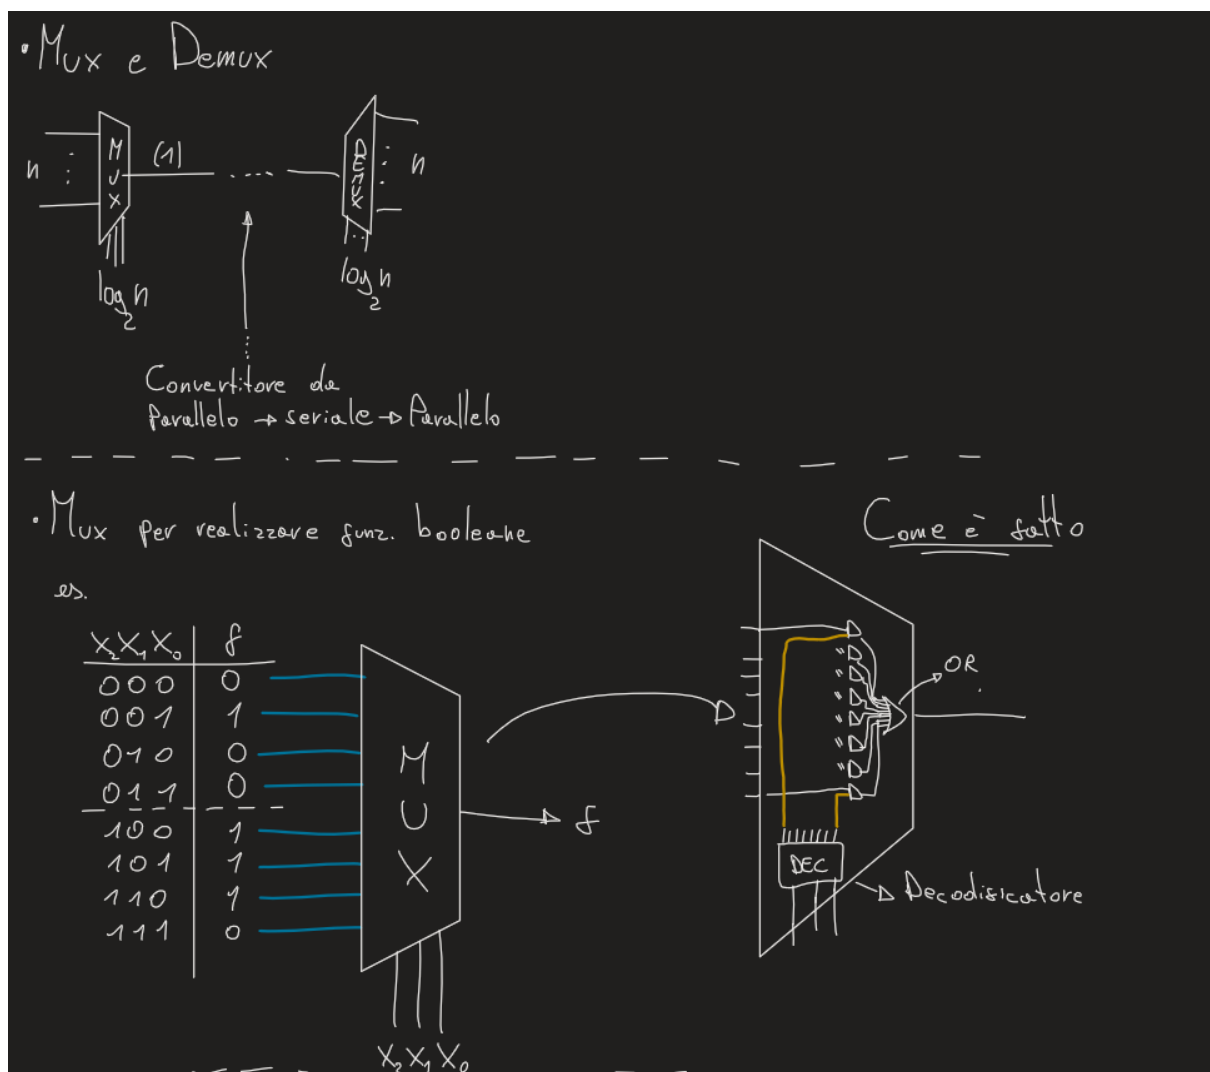 • Mux e Demux
n ⋮ MUX (1) .... DEMUX ⋮ n
log₂n log₂n
Convertitore da
Parallelo → seriale → Parallelo
• Mux per realizzare funz. booleane
Come è fatto
es.
X₂X₁X₀ f
000 0
001 1
010 0
011 0
100 1
101 1
110 1
111 0
MUX
f
X₂X₁X₀
OR
"
"
"
"
"
"
DEC
Decodificatore